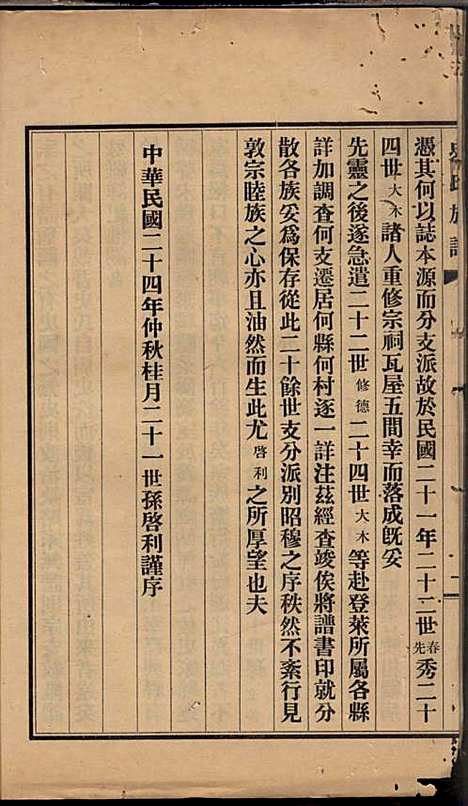 氏族譜
憑其何以誌本源而分支派故於民國二十一年二十二世春先秀二十
四世大木諸人重修宗祠瓦屋五間幸而落成既妥
先靈之後遂急遣二十二世修德二十四世大木等赴登萊所屬各縣
詳加調查何支遷居何縣何村逐一詳注茲經查竣俟將譜書印就分
散各族妥為保存從此二十餘世支分派別昭穆之序秩然不紊行見
敦宗睦族之心亦且油然而生此尤啓利之所厚望也夫
中華民國二十四年仲秋桂月二十一世孫啓利謹序